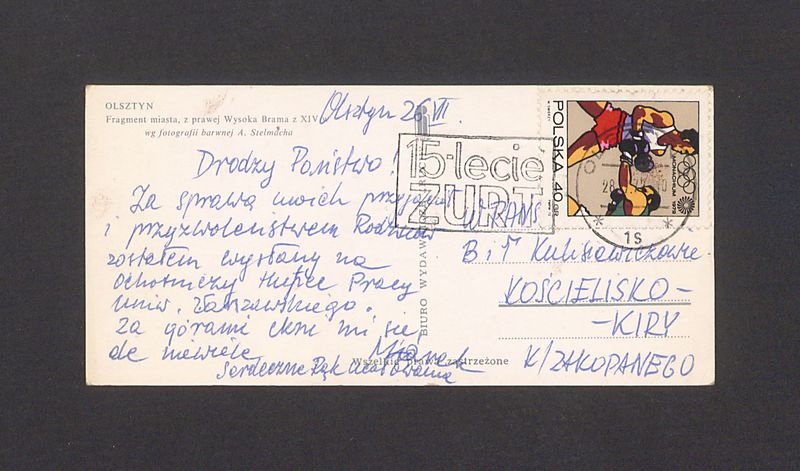 OLSZTYN
Fragment miasta, z prawej Wysoka Brama z XIV
wg fotografii barwnej A. Stelmacha
Olsztyn 26 VII.
Drodzy Państwo!
Za sprawą moich przyjaciół
i przyzwoleństwem Rodziców
zostałem wysłany na
Ochotniczy Hufiec Pracy
Uniw. Warszawskiego.
Za górami ckni mi się,
ale niewiele
Marek
Serdeczne rąk ucałowania
BIURO WYDAWNICZE
Wszelkie prawa zastrzeżone
15-lecie
ZURT
POLSKA 40 GR
MONACHIUM 1972
1s
W.PAŃS
B i T Kulisiewiczowie
KOŚCIELISKO-
-KIRY
K/ZAKOPANEGO